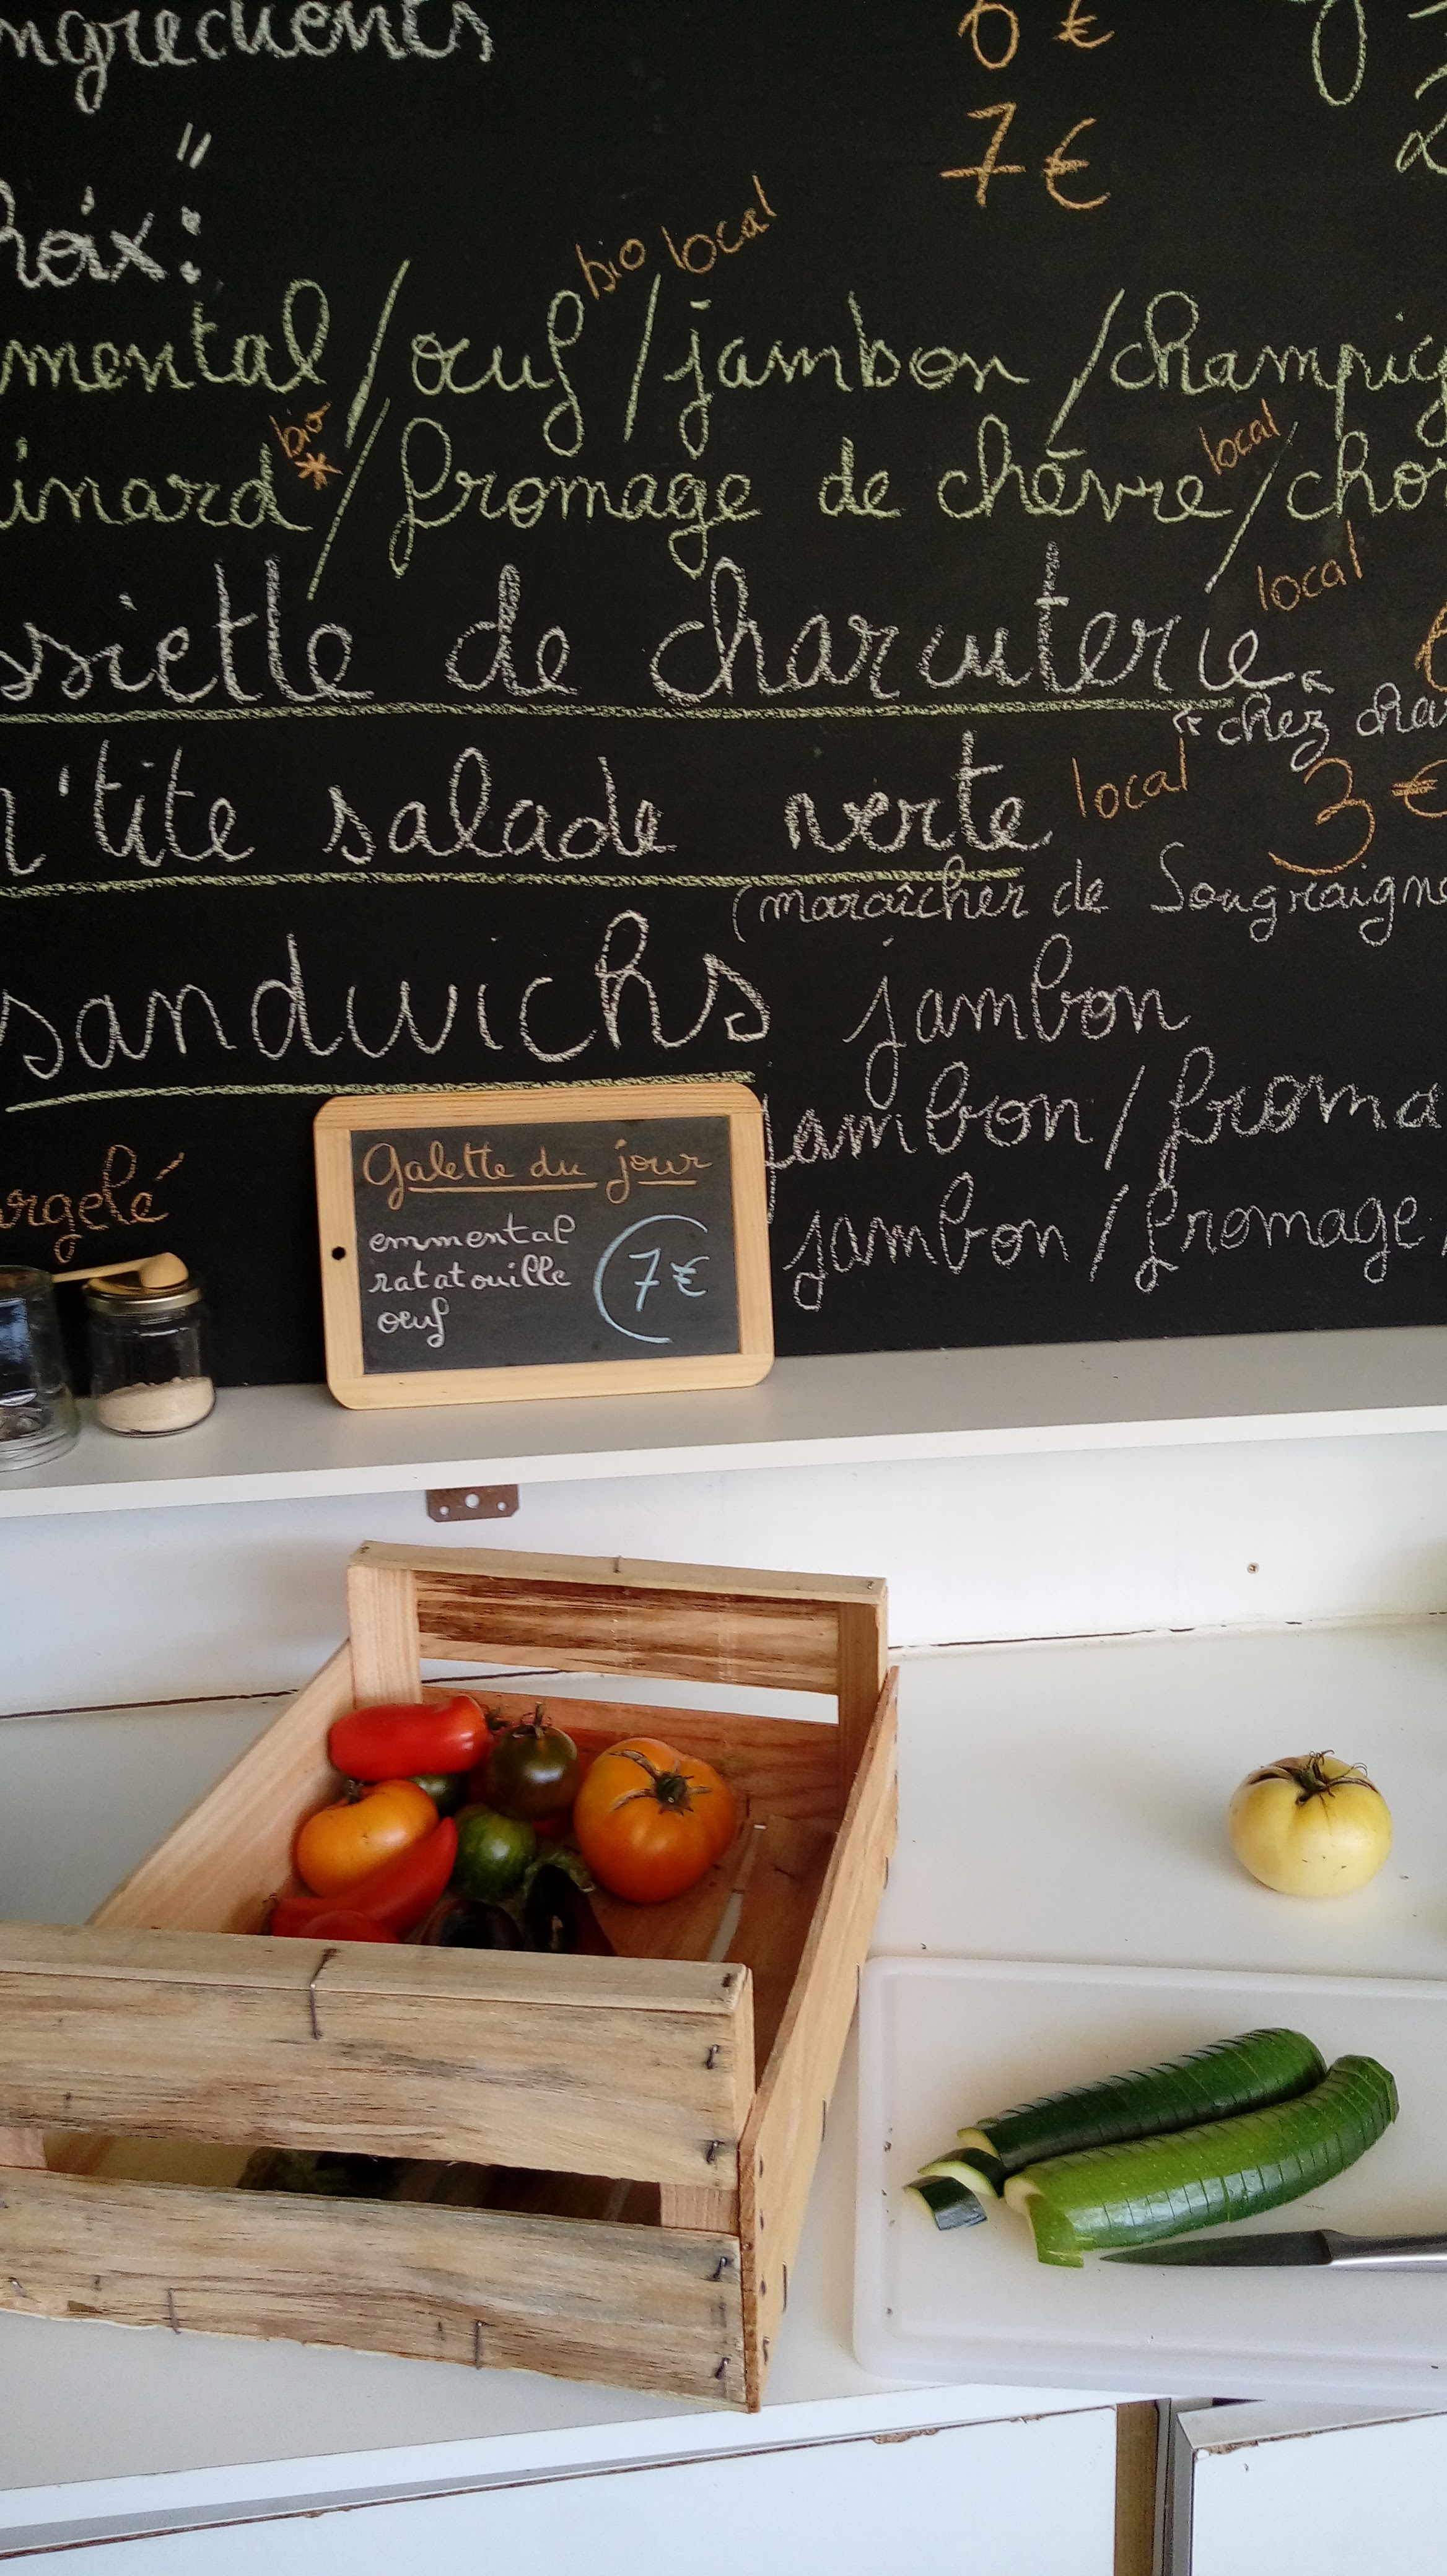 ngrédients 6 €
" 7 €
hoix :
bio local
mental / œuf / jambon / champig
bio local
inard * / fromage de chèvre / cho
local
ssiette de charcuterie
* chez cha
'tite salade verte local 3 €
(maraîcher de Sougraigne
sandwichs jambon
jambon / froma
jambon / fromage
urgelé
Galette du jour
emmental
ratatouille 7 €
œuf